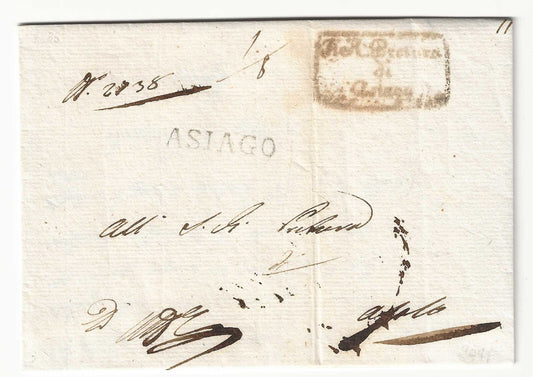 N. 2738
1/8
R. R. Pretura
di
Asiago
ASIAGO
All
Pretura
di
Asolo